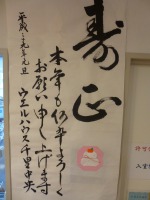 寿正
本年も何卒よろしく
お願い申し上げます
平成二十九年元旦
ウエルハウス千里中央
許可